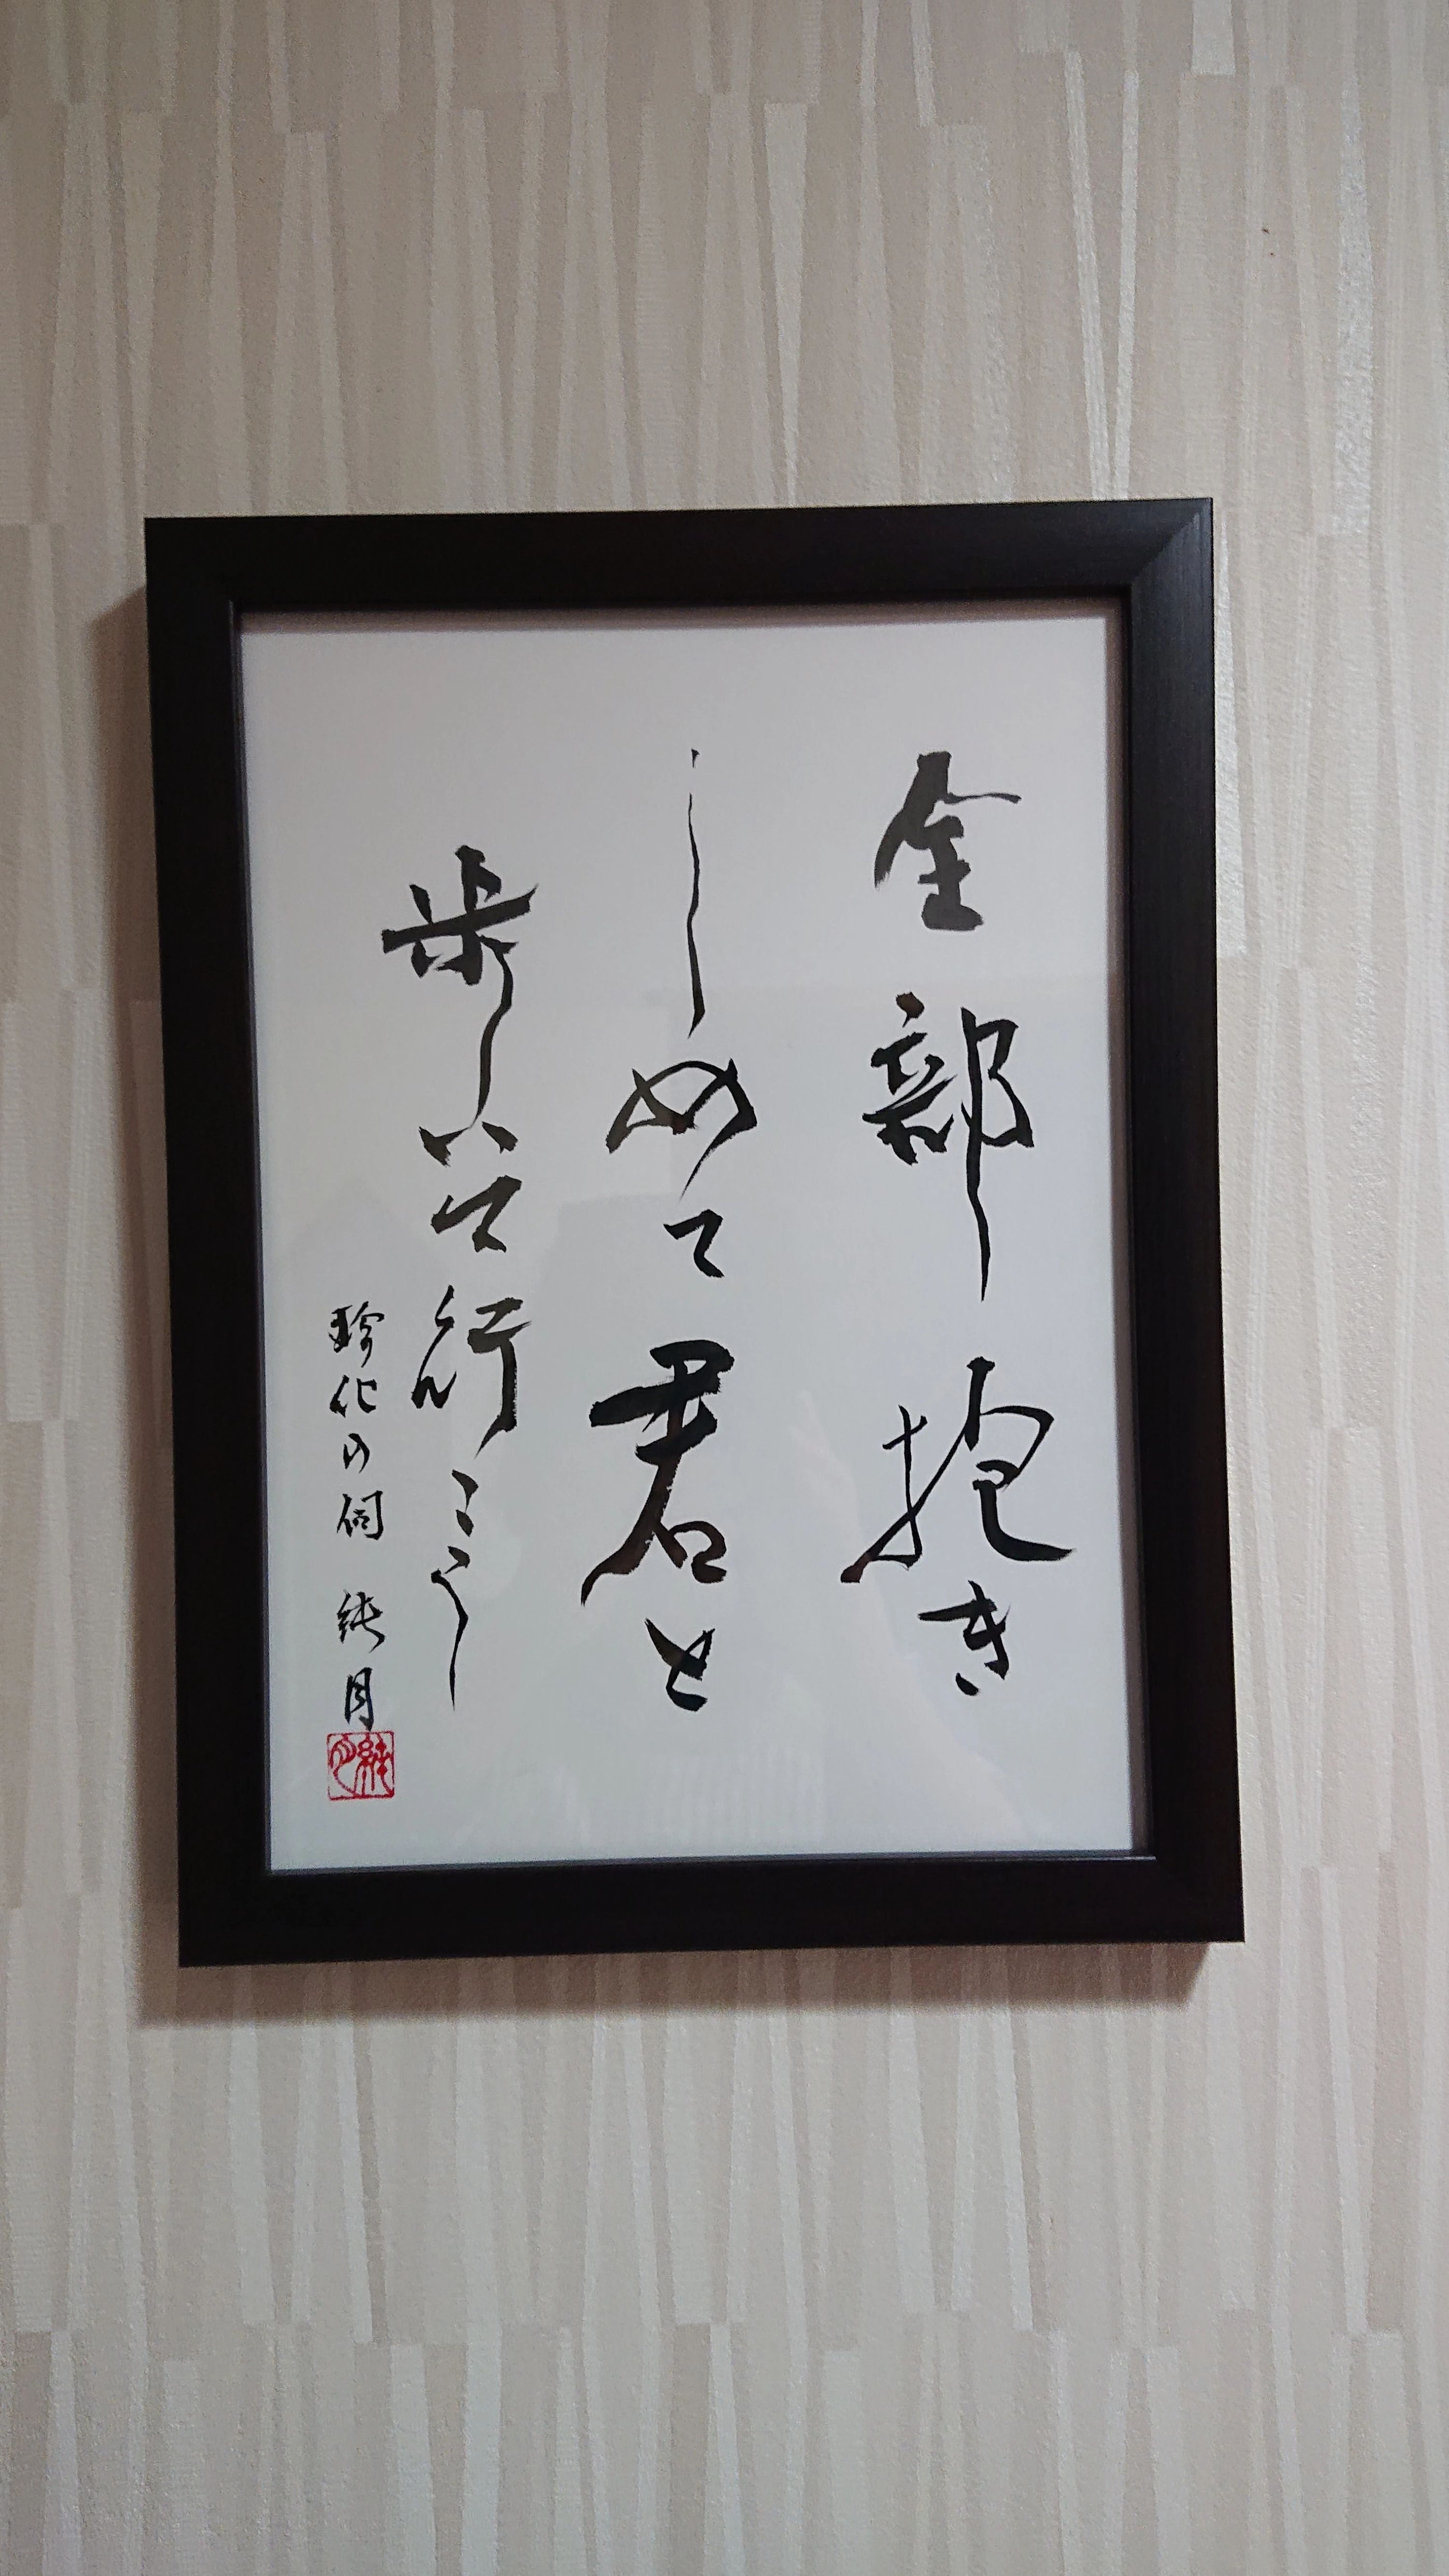 全部抱き
しめて君と
歩いて行こう
珍化の伺 純月
純月